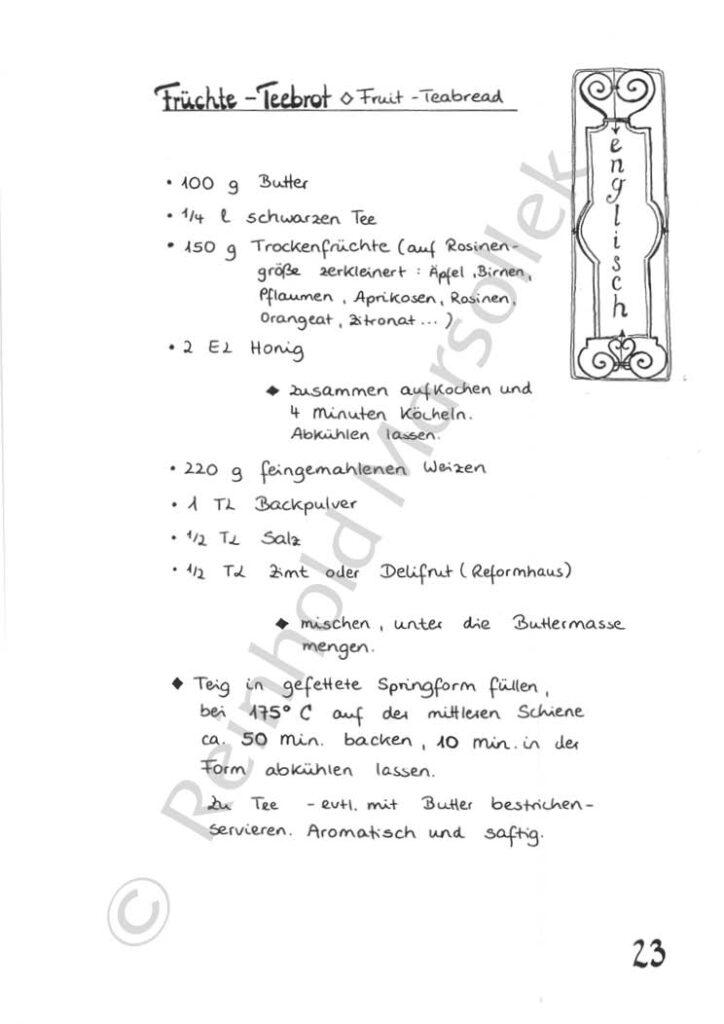 Früchte - Teebrot ◇ Fruit - Teabread
englisch
• 100 g Butter
• 1/4 l schwarzen Tee
• 150 g Trockenfrüchte (auf Rosinen-
größe zerkleinert: Äpfel, Birnen,
Pflaumen, Aprikosen, Rosinen,
Orangeat, Zitronat...)
• 2 EL Honig
◆ zusammen aufkochen und
4 Minuten köcheln.
Abkühlen lassen.
• 220 g feingemahlenen Weizen
• 1 TL Backpulver
• 1/2 TL Salz
• 1/2 TL Zimt oder Delifrut (Reformhaus)
◆ mischen, unter die Buttermasse
mengen.
◆ Teig in gefettete Springform füllen,
bei 175° C auf der mittleren Schiene
ca. 50 min. backen, 10 min. in der
Form abkühlen lassen.
Zu Tee - evtl. mit Butter bestrichen -
servieren. Aromatisch und saftig.
© Reinhold Marsollek
23